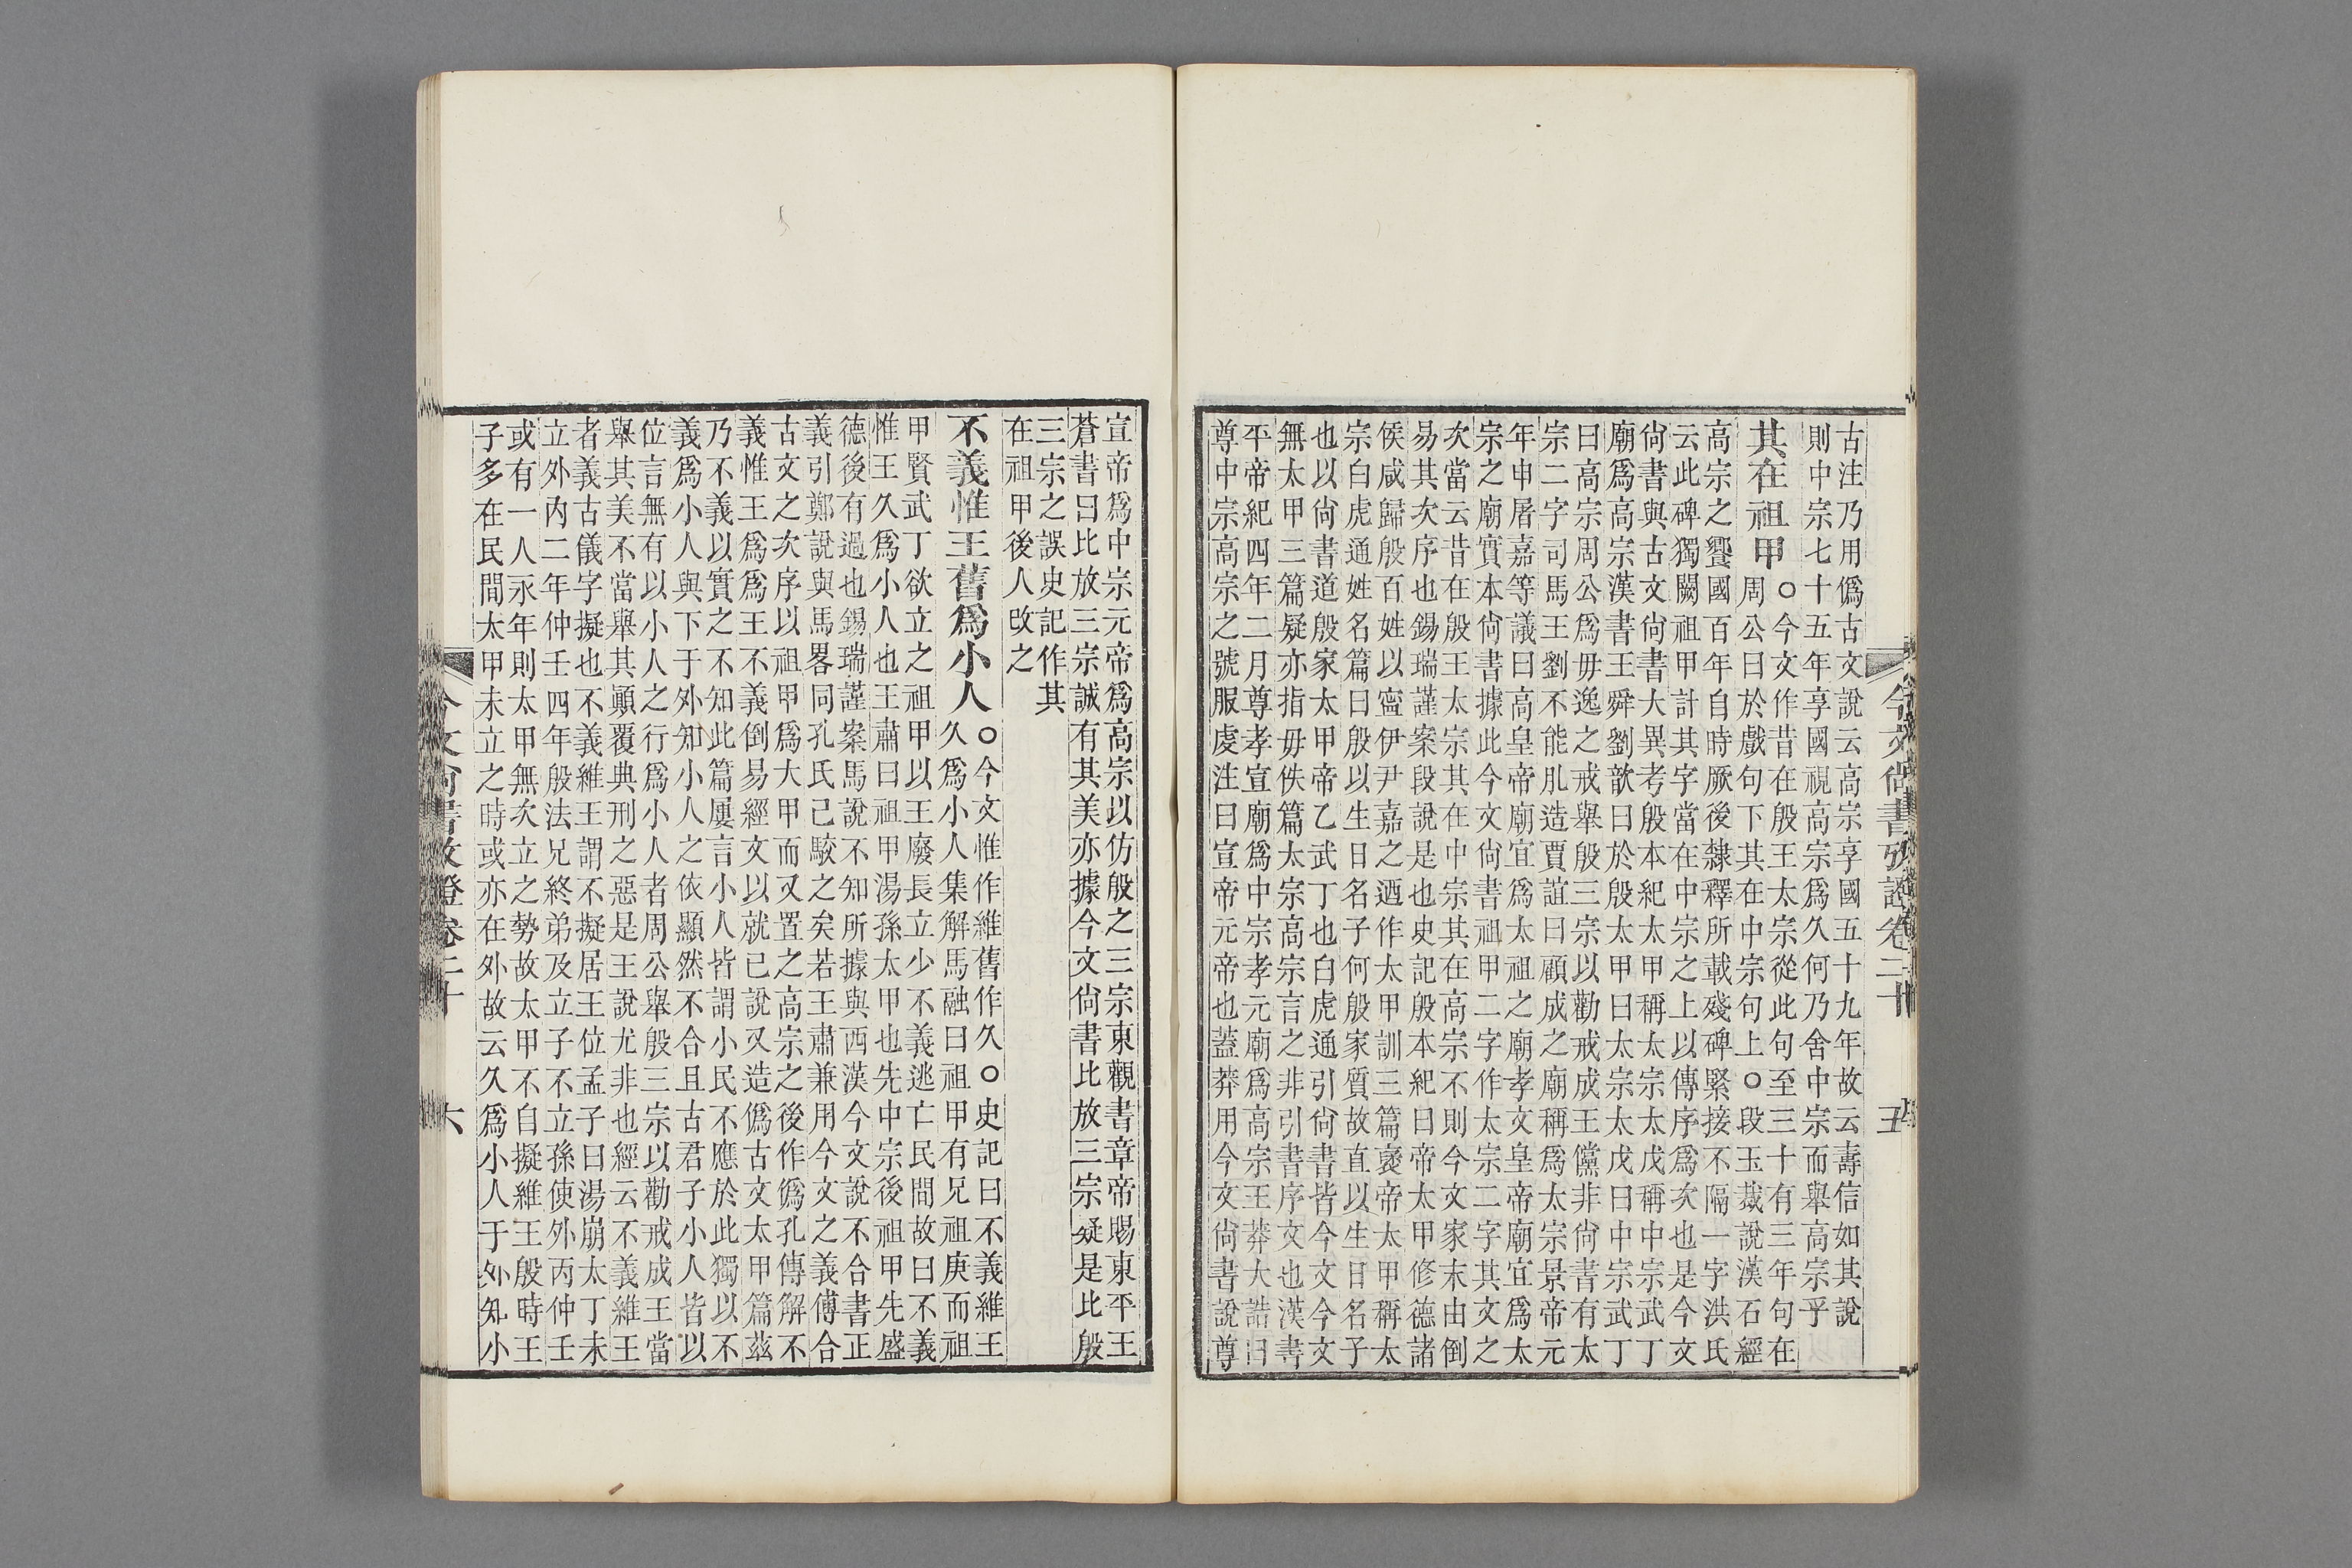 古注乃用僞古文說云高宗享國五十九年故云壽信如其說
則中宗七十五年享國視高宗爲久何乃舍中宗而舉高宗乎
其在祖甲○今文作昔在殷王太宗從此句至三十有三年句在
周公曰於戲句下其在中宗句上○段玉裁說漢石經
高宗之饗國百年自時厥後隸釋所載殘碑緊接不隔一字洪氏
云此碑獨闕祖甲計其字當在中宗之上以傳序爲次也是今文
尙書與古文尙書大異考殷本紀太甲稱太宗太戊稱中宗武丁
廟爲高宗漢書王舜劉歆曰於殷太甲曰太宗太戊曰中宗武丁
曰高宗周公爲毋逸之戒舉殷三宗以勸戒成王儻非尙書有太
宗二字司馬王劉不能肊造賈誼曰顧成之廟稱爲太宗景帝元
年申屠嘉等議曰高皇帝廟宜爲太祖之廟孝文皇帝廟宜爲太
宗之廟實本尙書據此今文尙書祖甲二字作太宗二字其文之
次當云昔在殷王太宗其在中宗其在高宗不則今文家末由倒
易其次序也錫瑞謹案段說是也史記殷本紀曰帝太甲修德諸
侯咸歸殷百姓以寍伊尹嘉之迺作太甲訓三篇襃帝太甲稱太
宗白虎通姓名篇曰殷以生日名子何殷家質故直以生日名子
也以尙書道殷家太甲帝乙武丁也白虎通引尙書皆今文今文
無太甲三篇疑亦指毋佚篇太宗高宗言之非引書序文也漢書
平帝紀四年二月尊孝宣廟爲中宗孝元廟爲高宗王莽大誥曰
尊中宗高宗之號服虔注曰宣帝元帝也蓋莽用今文尙書說尊
今文尙書攷證卷二十 五
宣帝爲中宗元帝爲高宗以仿殷之三宗東觀書章帝賜東平王
蒼書曰比放三宗誠有其美亦據今文尙書比放三宗疑是比殷
三宗之誤史記作其
在祖甲後人改之
不義惟王舊爲小人○今文惟作維舊作久○史記曰不義維王
久爲小人集解馬融曰祖甲有兄祖庚而祖
甲賢武丁欲立之祖甲以王廢長立少不義逃亡民間故曰不義
惟王久爲小人也王肅曰祖甲湯孫太甲也先中宗後祖甲先盛
德後有過也錫瑞謹案馬說不知所據與西漢今文說不合書正
義引鄭說與馬畧同孔氏已駮之矣若王肅兼用今文之義傅合
古文之次序以祖甲爲大甲而又置之高宗之後作僞孔傳解不
義惟王爲爲王不義倒易經文以就已說又造僞古文太甲篇茲
乃不義以實之不知此篇屢言小人皆謂小民不應於此獨以不
義爲小人與下于外知小人之依顯然不合且古君子小人皆以
位言無有以小人之行爲小人者周公舉殷三宗以勸戒成王當
舉其美不當舉其顚覆典刑之惡是王說尤非也經云不義維王
者義古儀字擬也不義維王謂不擬居王位孟子曰湯崩太丁未
立外丙二年仲壬四年殷法兄終弟及立子不立孫使外丙仲壬
或有一人永年則太甲無次立之勢故太甲不自擬維王殷時王
子多在民間太甲未立之時或亦在外故云久爲小人于外知小
今文尙書攷證卷二十 六